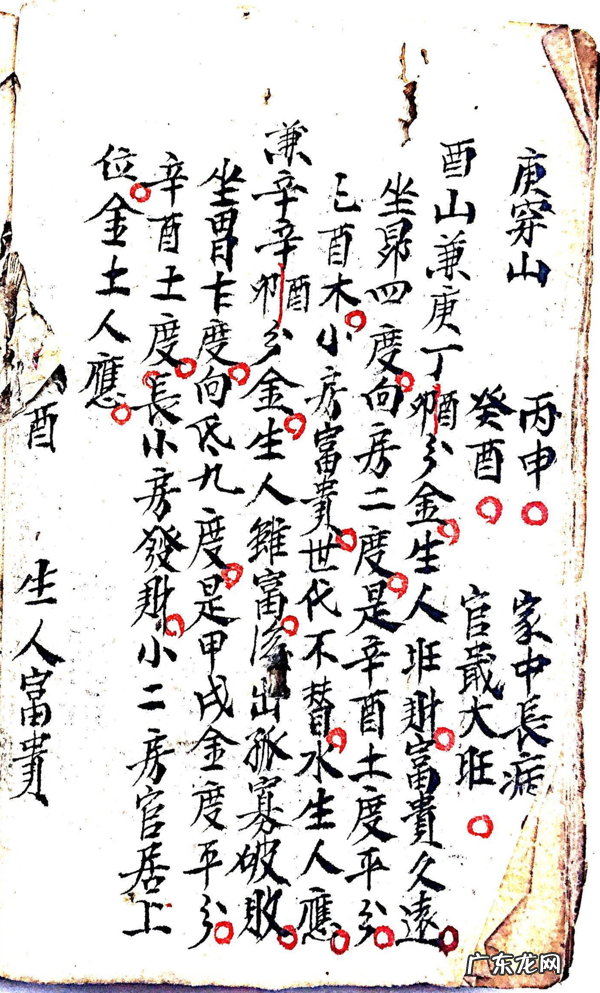 庚穿山 丙申 家中長病
癸酉 官嚴大旺
酉山兼庚丁酉卯分金生人旺財富貴久遠
坐昴四度向房二度是辛酉土度平分
己酉木小房富貴世代不替水生人應
兼辛辛酉卯分金生人雖富後出孤寡破敗
坐胃七度向氐九度是甲戌金度平分
辛酉土度長小房發財小二房官居上
位金土人應
酉 生人富貴
广东龙网